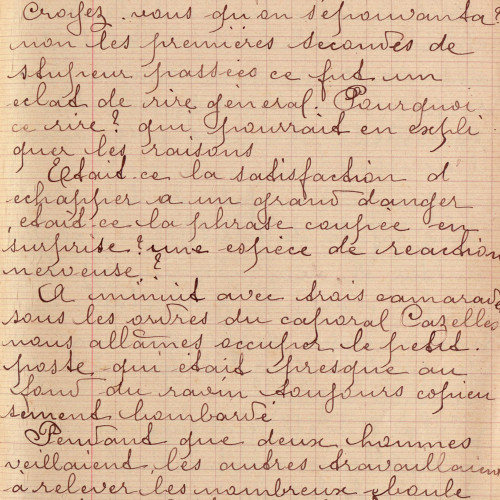 Croyez-vous qu'on s'épouvanta?
non les premières secondes de
stupeur passées ce fut un
eclat de rire géneral. Pourquoi
ce rire? qui pourrait en expli
quer les raisons
Etait-ce la satisfaction d
echapper a un grand danger
, etait-ce la phrase coupée en
surprise? une espèce de reaction
nerveuse?
A minuit avec trois camarade
sous les ordres du caporal Cazelles
nous allâmes occuper le petit
poste qui était presque au
fond du ravin toujours copieu
sement bombardé
Pendant que deux hommes
veillaient, les autres travaillaient
a relever les nombreux éboule